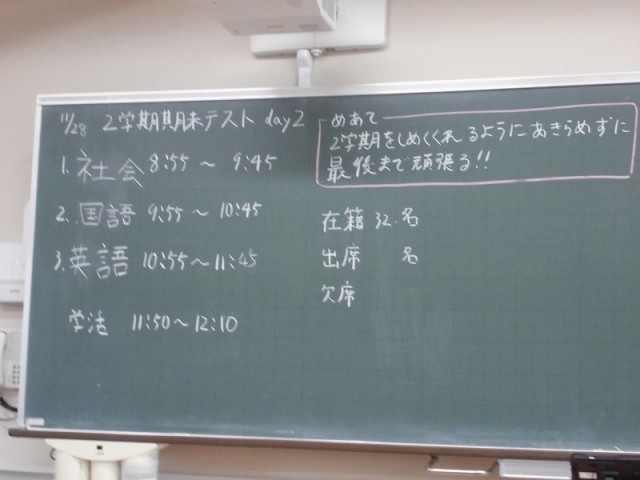 11/28 2学期期末テスト day2
1. 社会 8:55 ～ 9:45
2. 国語 9:55 ～ 10:45
3. 英語 10:55～11:45
学活 11:50～12:10
めあて
2学期をしめくくれるようにあきらめずに
最後まで頑張る!!
在籍 32.名
出席 名
欠席